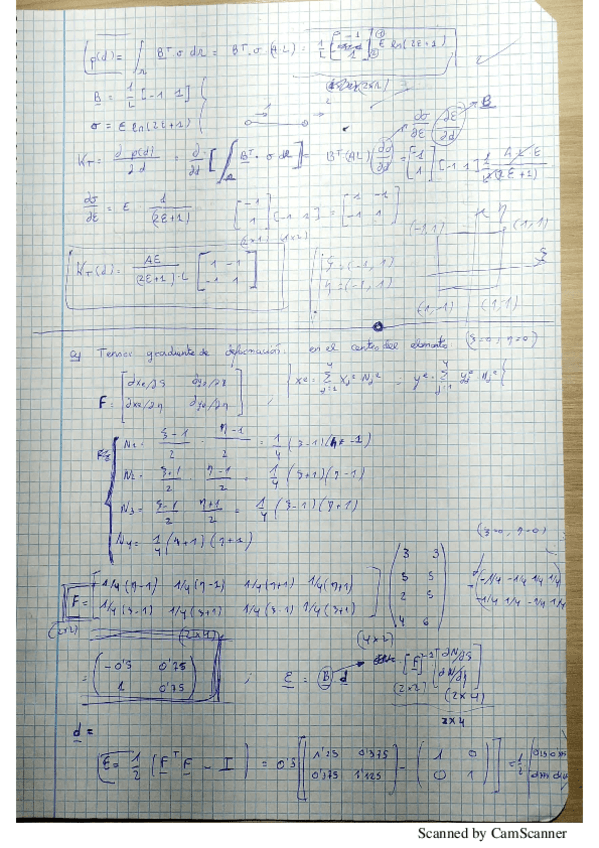 p(d) = ∫ Bᵀ σ dΩ = Bᵀ·σ (A L) = 1/L [-1 1] E ln(2ε+1)
B = 1/L [-1 1]
σ = E ln(2ε+1)
K_T = ∂p(d)/∂d = ∂/∂d [∫ Bᵀ·σ dΩ] = Bᵀ(AL) (dσ/dε) (∂ε/∂d) = [-1 1] [-1 1] 1/L A L E / (2ε+1)
B
dσ/dε = E 1/(2ε+1) [-1 1] [-1 1] = [1 -1 -1 1]
(2x1) (1x2)
K_T(d) = AE/((2ε+1)·L) [1 -1 -1 1]
ξ = (-1, 1)
η = (-1, 1)
η
(-1,1) (1,1)
ξ
(1,-1) (1,1)
a) Tensor gradiente de deformación en el centro del elemento (ξ=0, η=0)
F = [∂x_e/∂ξ ∂y_e/∂ξ ∂x_e/∂η ∂y_e/∂η]
N1 = (ξ-1)/2 · (η-1)/2 = 1/4 (ξ-1)(η-1)
N2 = (ξ+1)/2 · (η-1)/2 = 1/4 (ξ+1)(η-1)
N3 = (ξ-1)/2 (η+1)/2 = 1/4 (ξ-1)(η+1)
N4 = 1/4 (ξ+1)(η+1)
(ξ=0, η=0)
F = [1/4(η-1) 1/4(η-1) 1/4(η+1) 1/4(η+1)] (3 3
1/4(ξ-1) 1/4(ξ+1) 1/4(ξ-1) 1/4(ξ+1) 5 5
2 5
4 6)
(-1/4 -1/4 1/4 1/4
-1/4 1/4 -1/4 1/4)
(2x2) (2x4) (4x2)
= (-0'5 0'25
1 0'75) ; ε = B d
[F]⁻¹ [∂N/∂ξ ∂N/∂η]
(2x2) (2x4)
2x4
d =
E = 1/2 (Fᵀ F - I) = 0'5 [1'25 0'375 0'375 1'125] - (1 0 0 1) = 1/2
Scanned by CamScanner